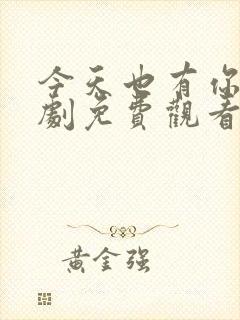 今天也有你
劇免費觀看
黃金强